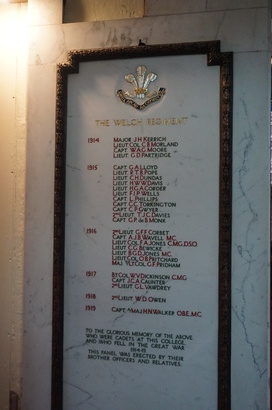 THE WELCH REGIMENT
1914 MAJOR J.H. KERRICH
LIEUT. COL. C.B. MORLAND
CAPT. W.A.G. MOORE
LIEUT. G.D. PARTRIDGE
1915 CAPT. G.A. LLOYD
LIEUT. R.T.B. POPE
LIEUT. C.H. DUNDAS
LIEUT. H.W.W. DAVIS
LIEUT. H.G.A. CORDER
LIEUT. F.J.P. WELLS
CAPT. L. PHILLIPS
CAPT. C.C. TORKINGTON
CAPT. C.P. GWYER
2ND LIEUT. T.J.C. DAVIES
CAPT. G.P. DE B. MONK
1916 2ND LIEUT. G.F.F. CORBET
CAPT. A.J.B. WAVELL MC.
LIEUT. COL. F.A. JONES C.M.G. D.S.O.
LIEUT. C.C. BEWICKE
LIEUT. B.G.D. JONES MC.
LIEUT. COL. O.B. PRITCHARD
MAJ. G.F. PRIDHAM
1917 W.V. DICKINSON C.M.G.
CAPT. J.C.A. CAUNTER
2ND LIEUT. G.L. VAWDREY
1918 2ND LIEUT. W.D. OWEN
1919 CAPT. & MAJ. H.N. WALKER O.B.E. M.C.
TO THE GLORIOUS MEMORY OF THE ABOVE
WHO WERE CADETS AT THIS COLLEGE,
AND WHO FELL IN THE GREAT WAR
1914-19
THIS PANEL WAS ERECTED BY THEIR
BROTHER OFFICERS AND RELATIVES.